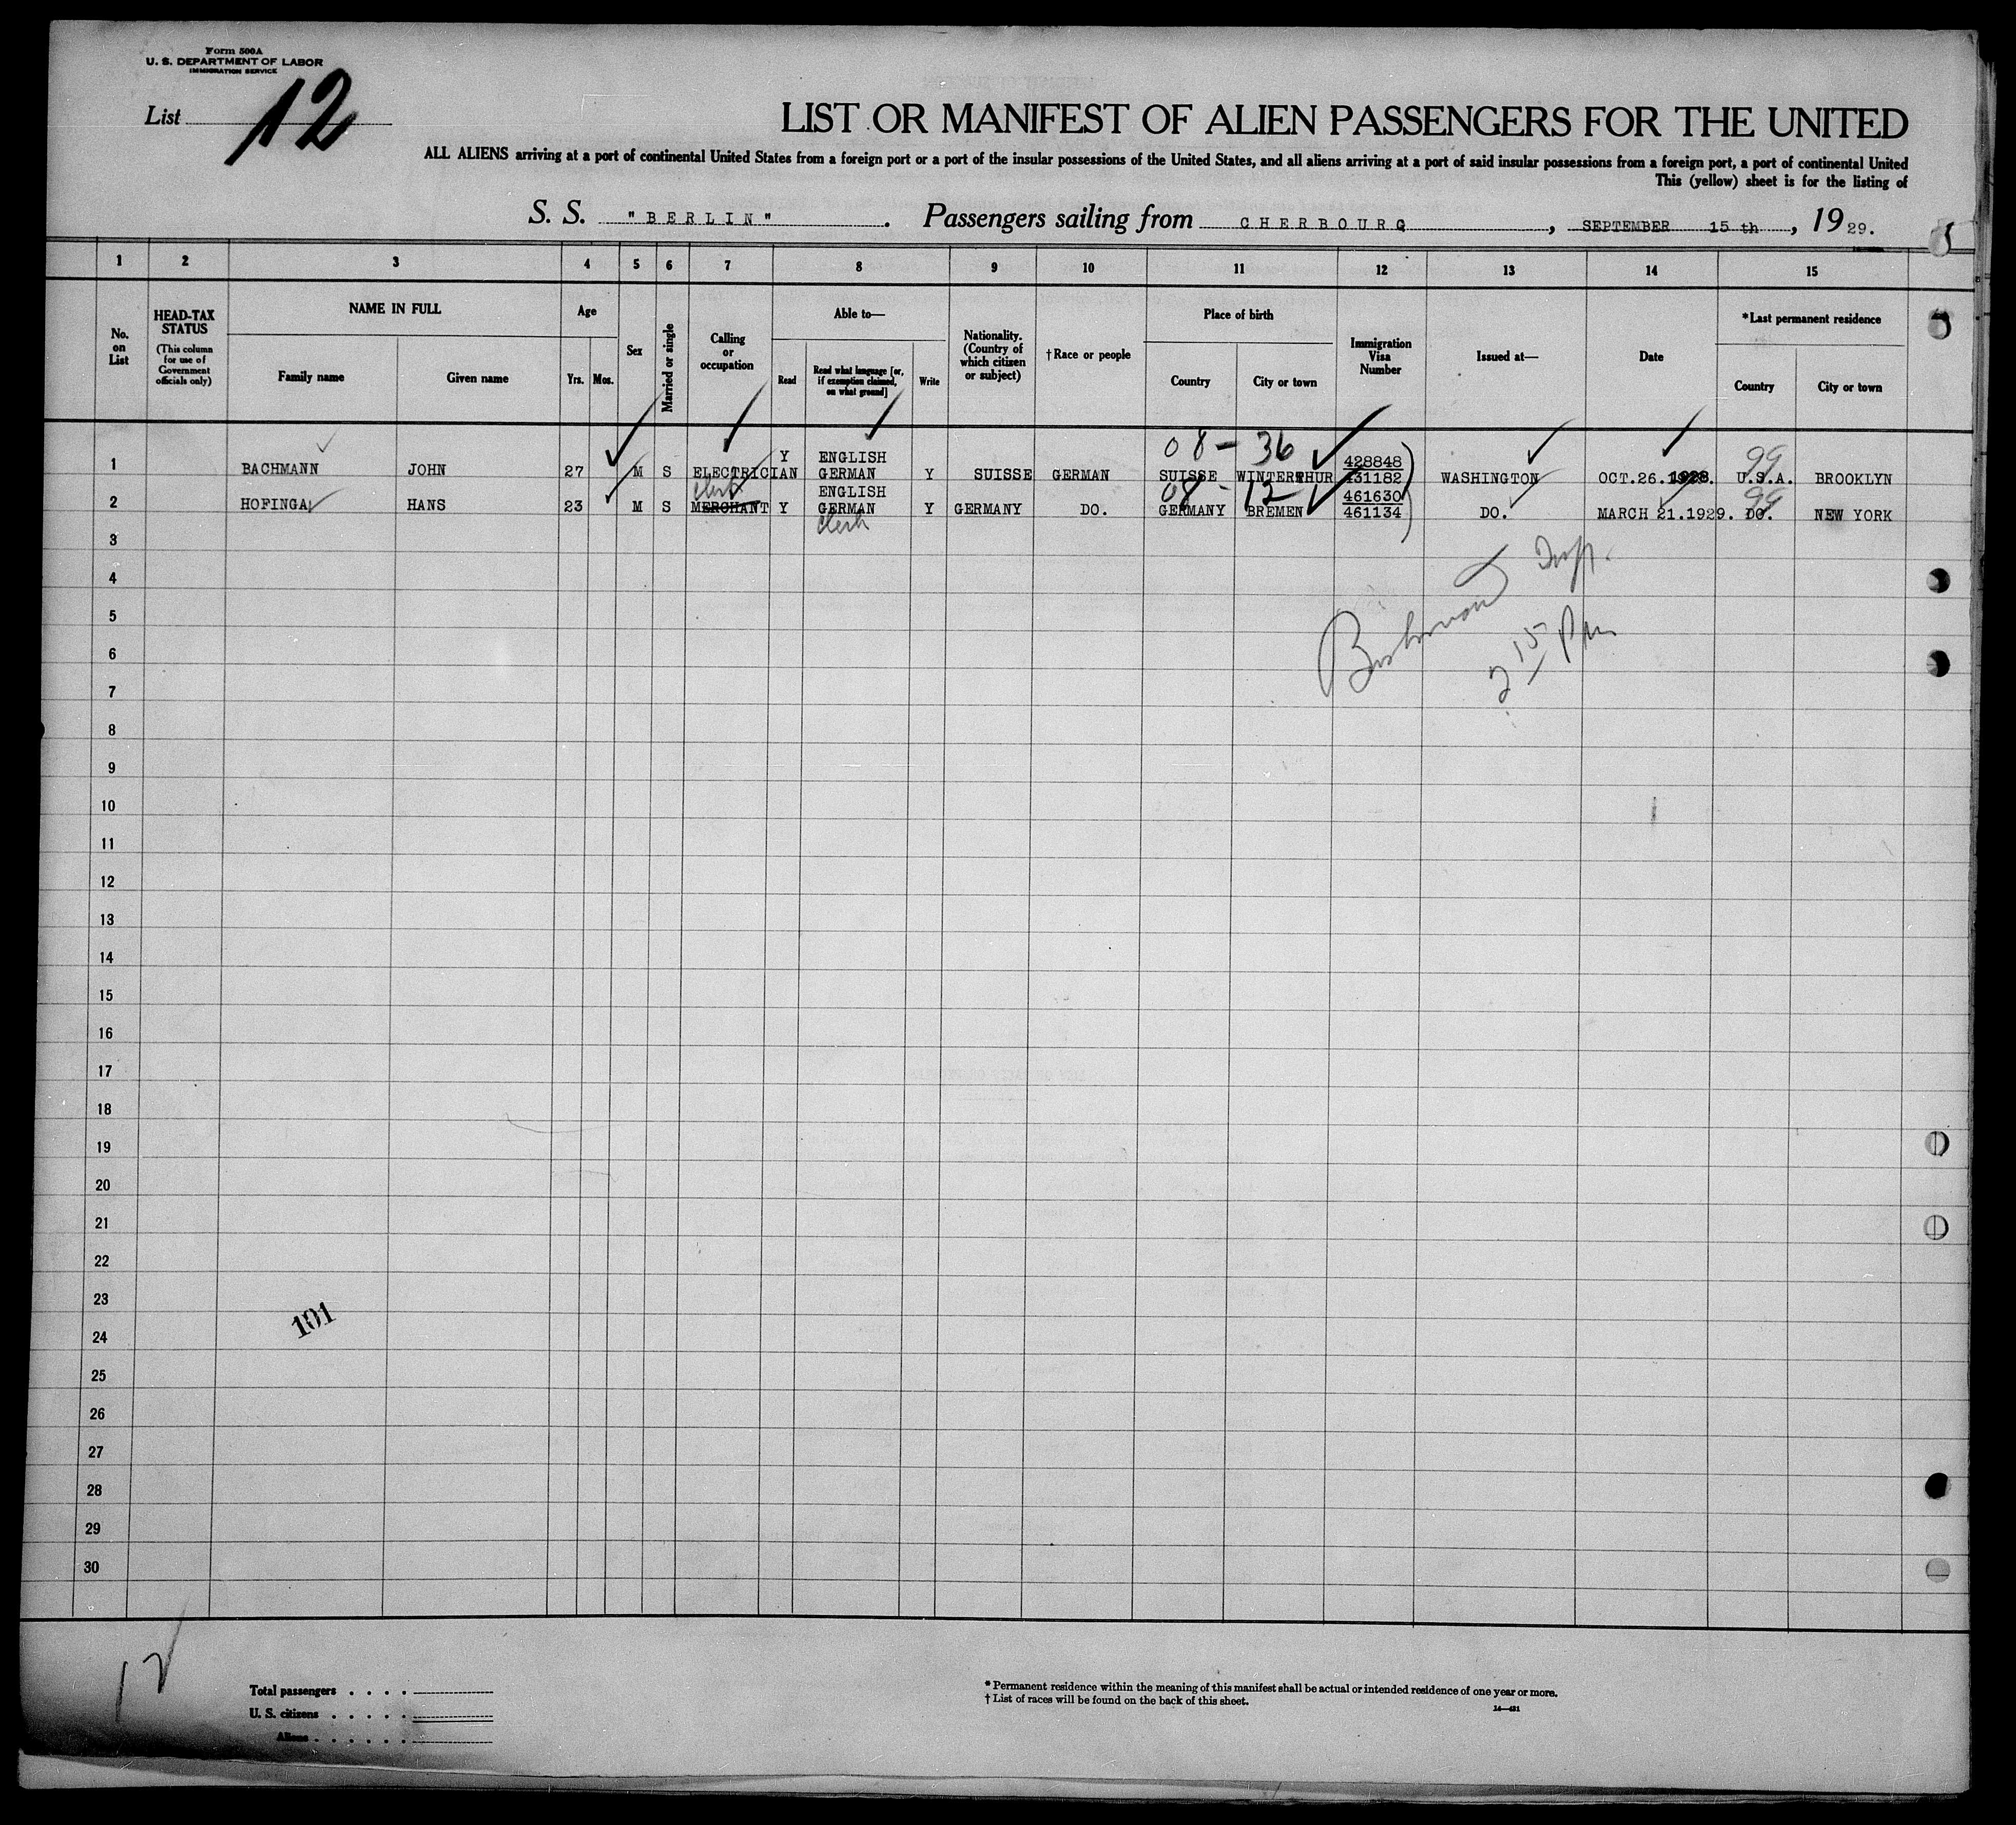 Form 500A
U. S. DEPARTMENT OF LABOR
IMMIGRATION SERVICE
List 12
LIST OR MANIFEST OF ALIEN PASSENGERS FOR THE UNITED
ALL ALIENS arriving at a port of continental United States from a foreign port or a port of the insular possessions of the United States, and all aliens arriving at a port of said insular possessions from a foreign port, a port of continental United
This (yellow) sheet is for the listing of
S. S. "BERLIN". Passengers sailing from CHERBOURG, SEPTEMBER 15 th, 1929.
1 2 3 4 5 6 7 8 9 10 11 12 13 14 15
No. on List
HEAD-TAX STATUS
(This column for use of Government officials only)
NAME IN FULL
Family name Given name
Age
Yrs. Mos.
Sex
Married or single
Calling or occupation
Able to—
Read
Read what language [or, if exemption claimed, on what ground]
Write
Nationality. (Country of which citizen or subject)
†Race or people
Place of birth
Country City or town
Immigration Visa Number
Issued at—
Date
*Last permanent residence
Country City or town
08 - 36 99
Y ENGLISH 428848
1 BACHMANN JOHN 27 M S ELECTRICIAN GERMAN Y SUISSE GERMAN SUISSE WINTERTHUR 431182 WASHINGTON OCT.26.1928. U.S.A. BROOKLYN
clerk ENGLISH 08 - 12 461630 99
2 HOFINGA HANS 23 M S MERCHANT Y GERMAN Y GERMANY DO. GERMANY BREMEN 461134 DO. MARCH 21.1929. DO. NEW YORK
clerk
3
Insp.
4
5
2 15 Pm
6
7
8
9
10
11
12
13
14
15
16
17
18
19
20
21
22
23
101
24
25
26
27
28
29
30
12
Total passengers . . . .
U. S. citizens . . . . .
Aliens . . . . . .
* Permanent residence within the meaning of this manifest shall be actual or intended residence of one year or more.
† List of races will be found on the back of this sheet.